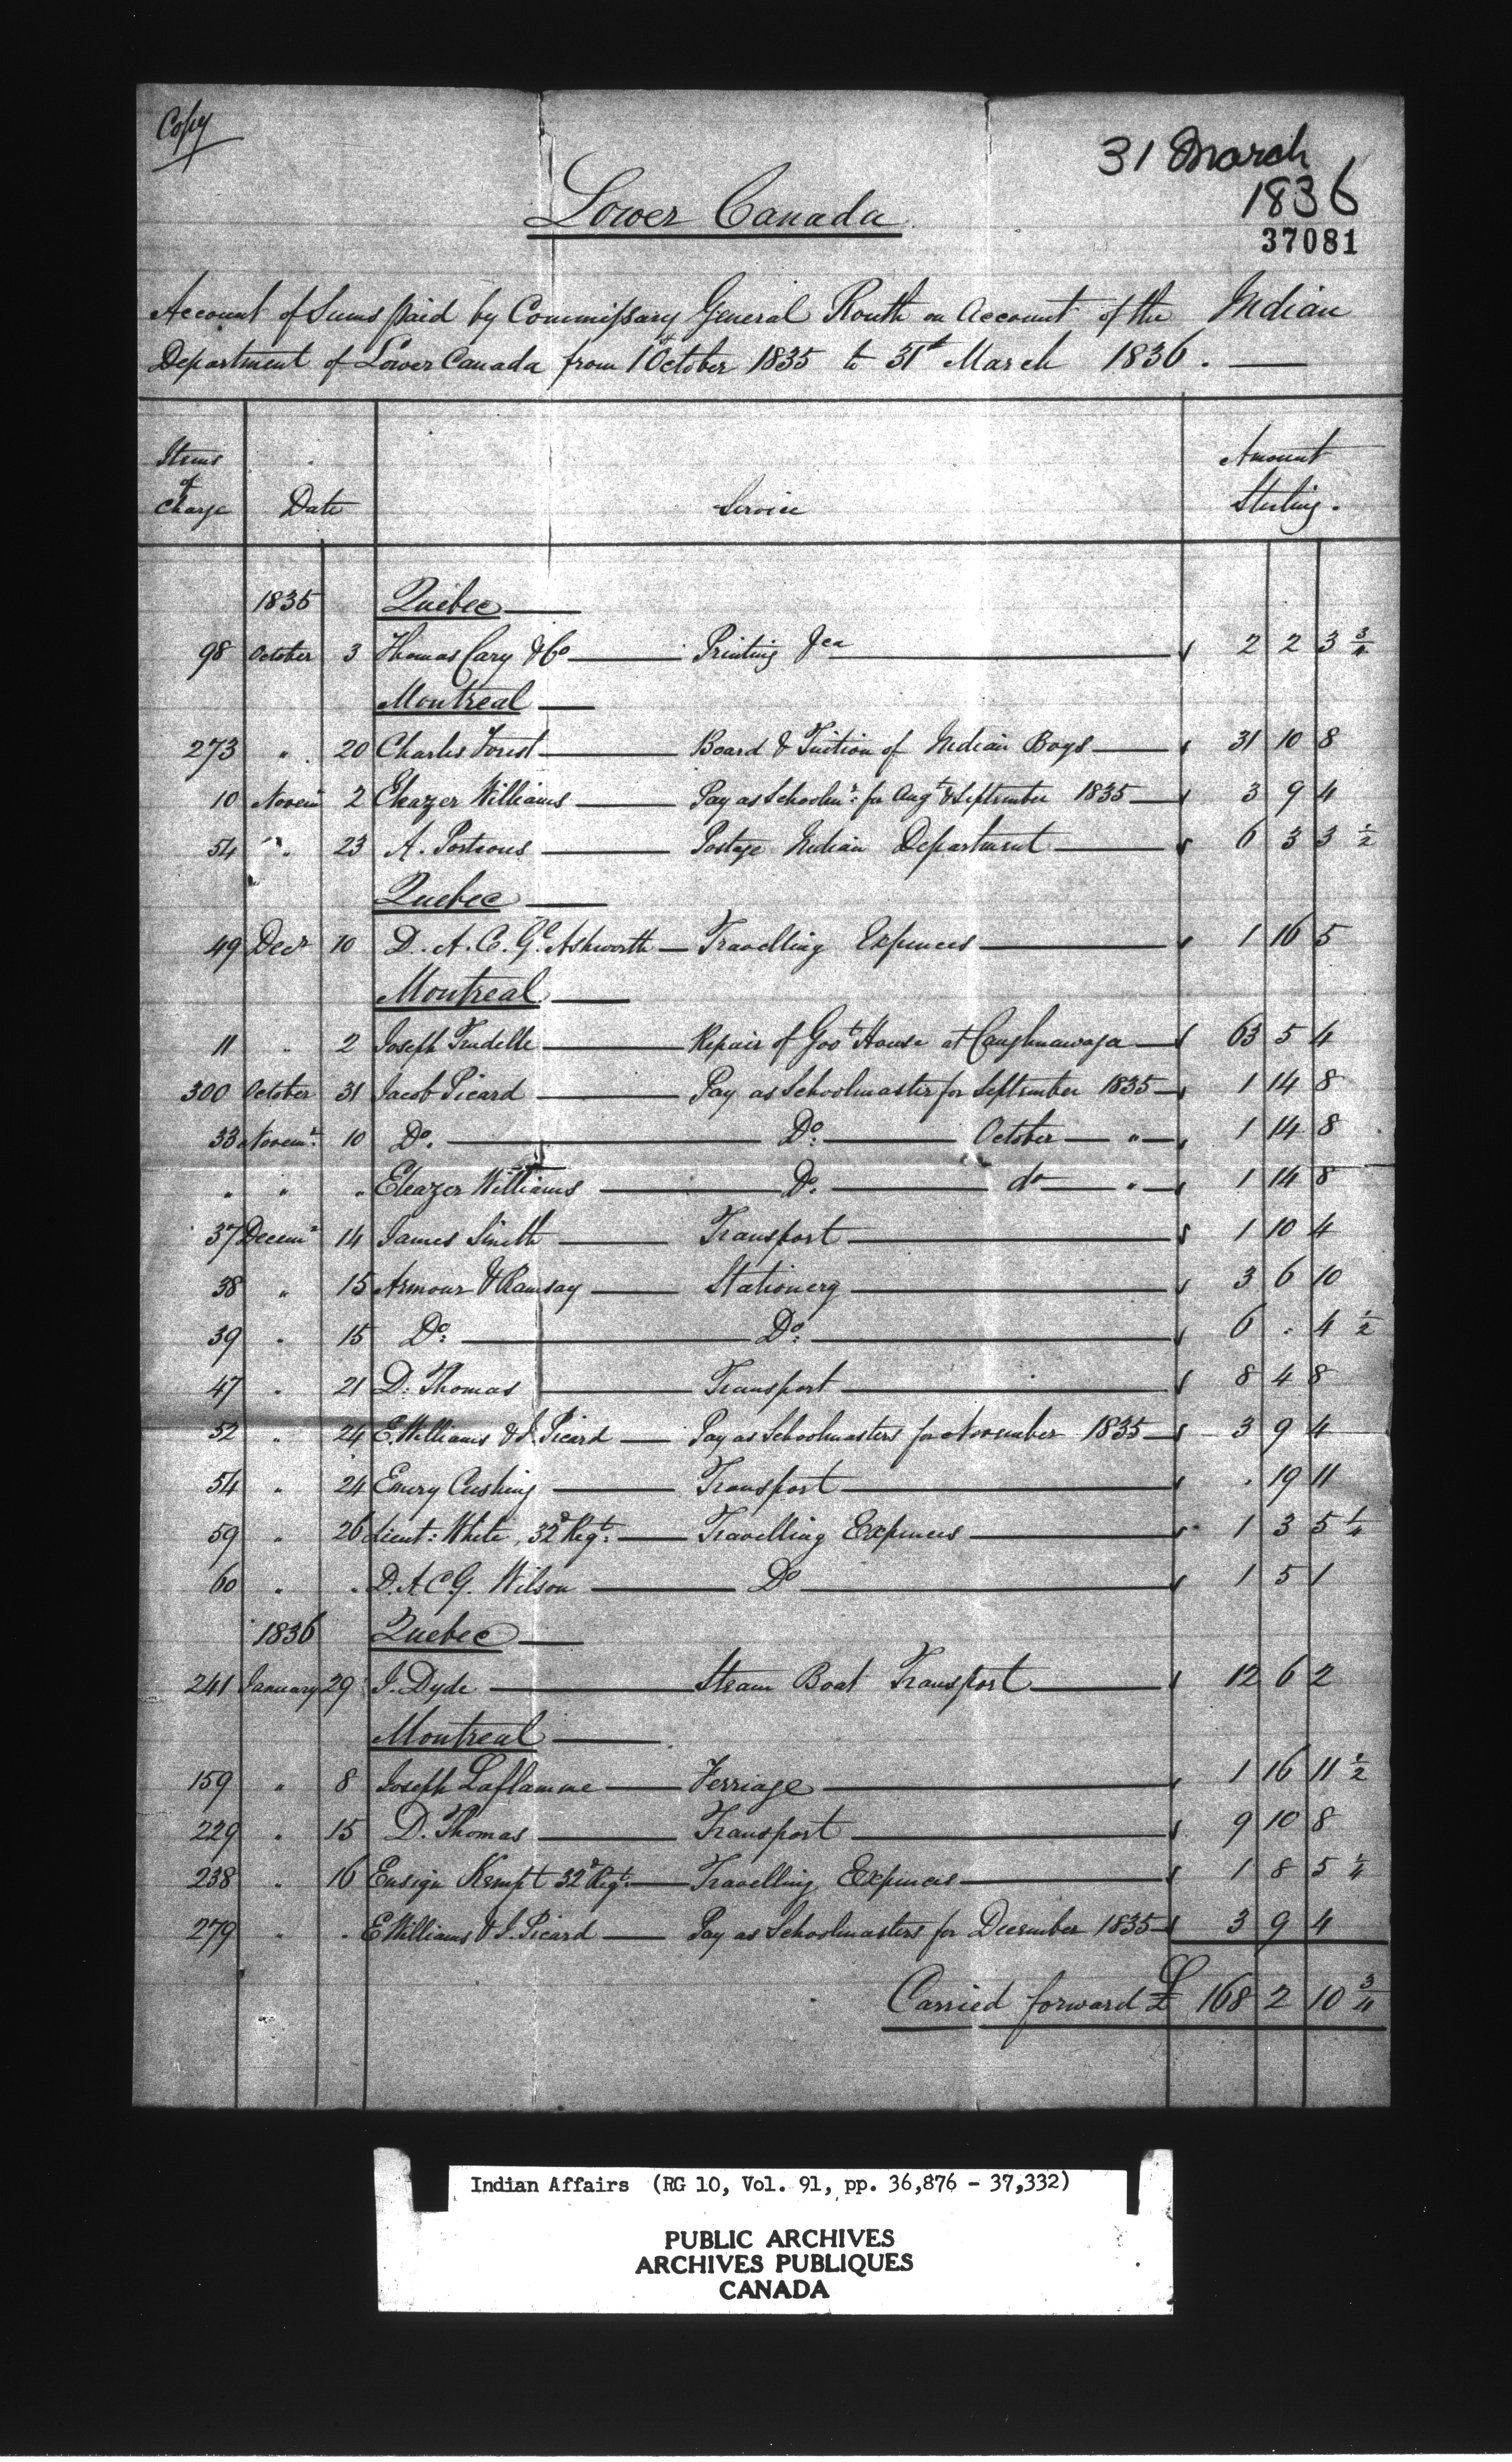 Copy
31 March
1836
37081
Lower Canada
Account of Sums paid by Commissary General Routh on Account of the Indian
Department of Lower Canada from 1st October 1835 to 31st March 1836.
Items of Charge Date Service Amount Sterling.
1835 Quebec
98 October 3 Thomas Cary & Co Printing &ca 2 2 3 3/4
Montreal
273 " 20 Charles Forest Board & Tuition of Indian Boys 31 10 8
10 Novemr 2 Eleazer Williams Pay as Schoolmr: for Augt & September 1835 3 9 4
54 " 23 A. Porteous Postage Indian Department 6 3 3 1/2
Quebec
49 Decr 10 D. A. C. Gl. Ashworth Travelling Expences 1 16 5
Montreal
11 " 2 Joseph Trudelle Repair of Govt House at Caughnawaga 63 5 4
300 October 31 Jacob Picard Pay as Schoolmaster for September 1835 1 14 8
33 Novemr: 10 Do. Do: October " 1 14 8
" " " Eleazer Williams Do. do " 1 14 8
37 Decemr 14 James Smith Transport 1 10 4
38 " 15 Armour & Ramsay Stationery 3 6 10
39 " 15 Do: Do: 6 . 4 1/2
47 " 21 D. Thomas Transport 8 4 8
52 " 24 E. Williams & J. Picard Pay as Schoolmasters for November 1835 3 9 4
54 " 24 Emery Cushing Transport . 19 11
59 " 26 Lieut: White, 32d Regt: Travelling Expences 1 3 5 1/4
60 " " D.A.C.G. Wilson Do 1 5 1
1836 Quebec
241 January 29 J. Dyde Steam Boat Transport 12 6 2
Montreal
159 " 8 Joseph Laflamme Ferriage 1 16 11 1/2
229 " 15 D. Thomas Transport 9 10 8
238 " 16 Ensign Kempt 32d Regt: Travelling Expences 1 8 5 1/4
279 " " E Williams & J. Picard Pay as Schoolmasters for December 1835 3 9 4
Carried forward £ 168 2 10 3/4
Indian Affairs (RG 10, Vol. 91, pp. 36,876 - 37,332)
PUBLIC ARCHIVES
ARCHIVES PUBLIQUES
CANADA